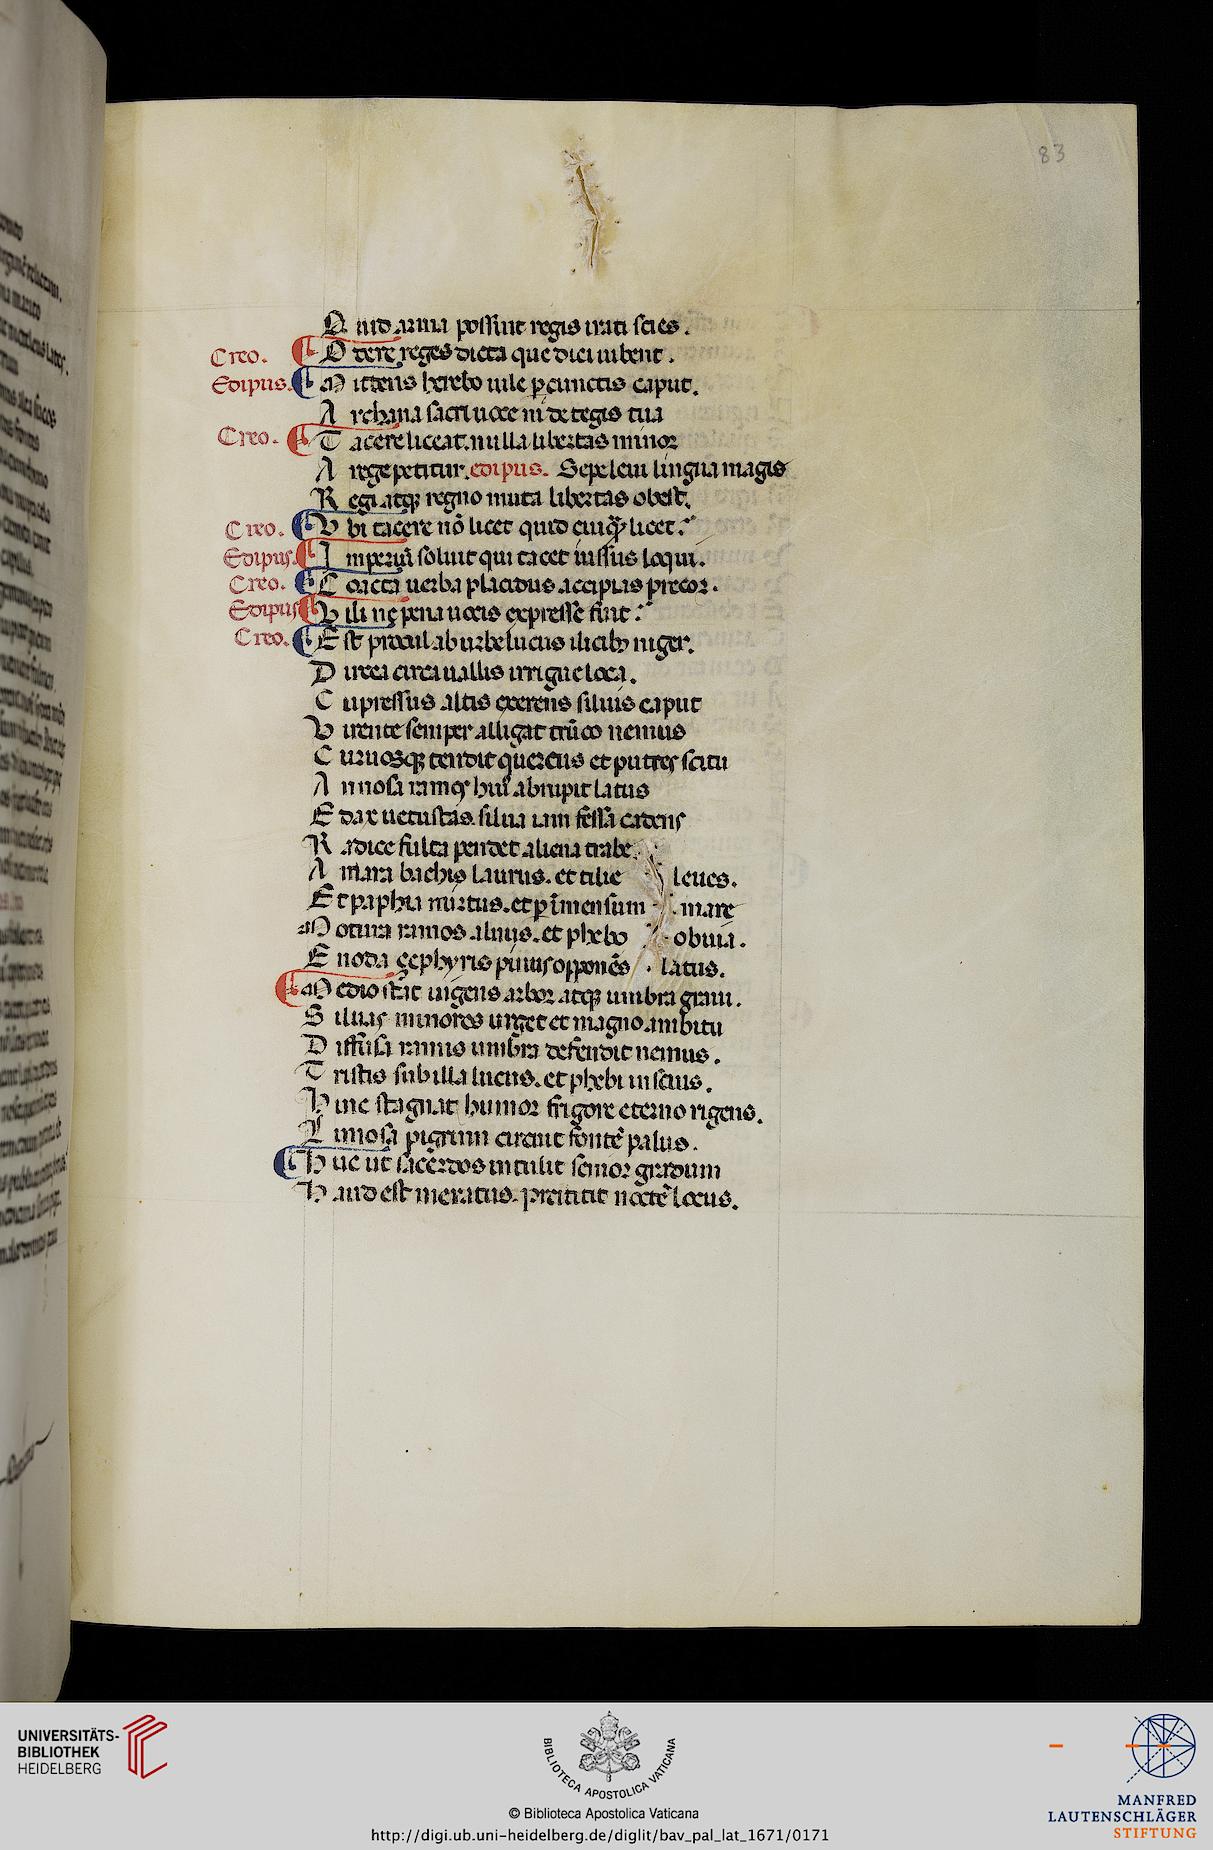 83
Q uid arma possint regis irati scies.
Creo. O dere reges dicta que dici iubent.
Edipus. M ittens herebo uile p cunctis caput.
A rchana sacri uoce ni detegis tua
Creo. T acere liceat. nulla libertas minor
A rege petitur. edipus. Sepe leui lingua magis
R egi atq; regno muta libertas obest.
Creo. V bi tacere nō licet quid cuiq̄ licet.
Edipus. I mperiū soluit qui tacet iussus loqui.
Creo. C oacta uerba placidus accipias precor.
Edipus V lli ne pena uocis expresse fuit
Creo. E st procul ab urbe lucus ilicib; niger.
D ircea circa uallis irrigue loca.
C upressus altis exerens siluis caput
V irente semper alligat trūco nemus
C uruosq; tendit quercus et putres scitu
A nnosa ramos hui abrupit latus
E dax uetustas. silua iam fessa cadens
R adice fulta pendet aliena trabe.
A mara bachis laurus. et tilie leues.
E t paphia mirtus. et p īmensum mare
M otura ramos alnus. et phebo obuia.
E noda zephyris pinus opponēs latus.
M edio stat ingens arbor atq; umbra graui.
S iluas minores urget et magno ambitu
D iffusa ramis umbra defendit nemus.
T ristis sub illa lucus. et phebi inscius.
H inc stagnat humor frigore eterno rigens.
L imosa pigrum circuit fontē palus.
H uc ut sacerdos intulit senior gradum
H aud est meratus. prestitit noctē locus.
UNIVERSITÄTS-
BIBLIOTHEK
HEIDELBERG
BIBLIOTECA APOSTOLICA VATICANA
© Biblioteca Apostolica Vaticana
http://digi.ub.uni-heidelberg.de/diglit/bav_pal_lat_1671/0171
MANFRED
LAUTENSCHLÄGER
STIFTUNG